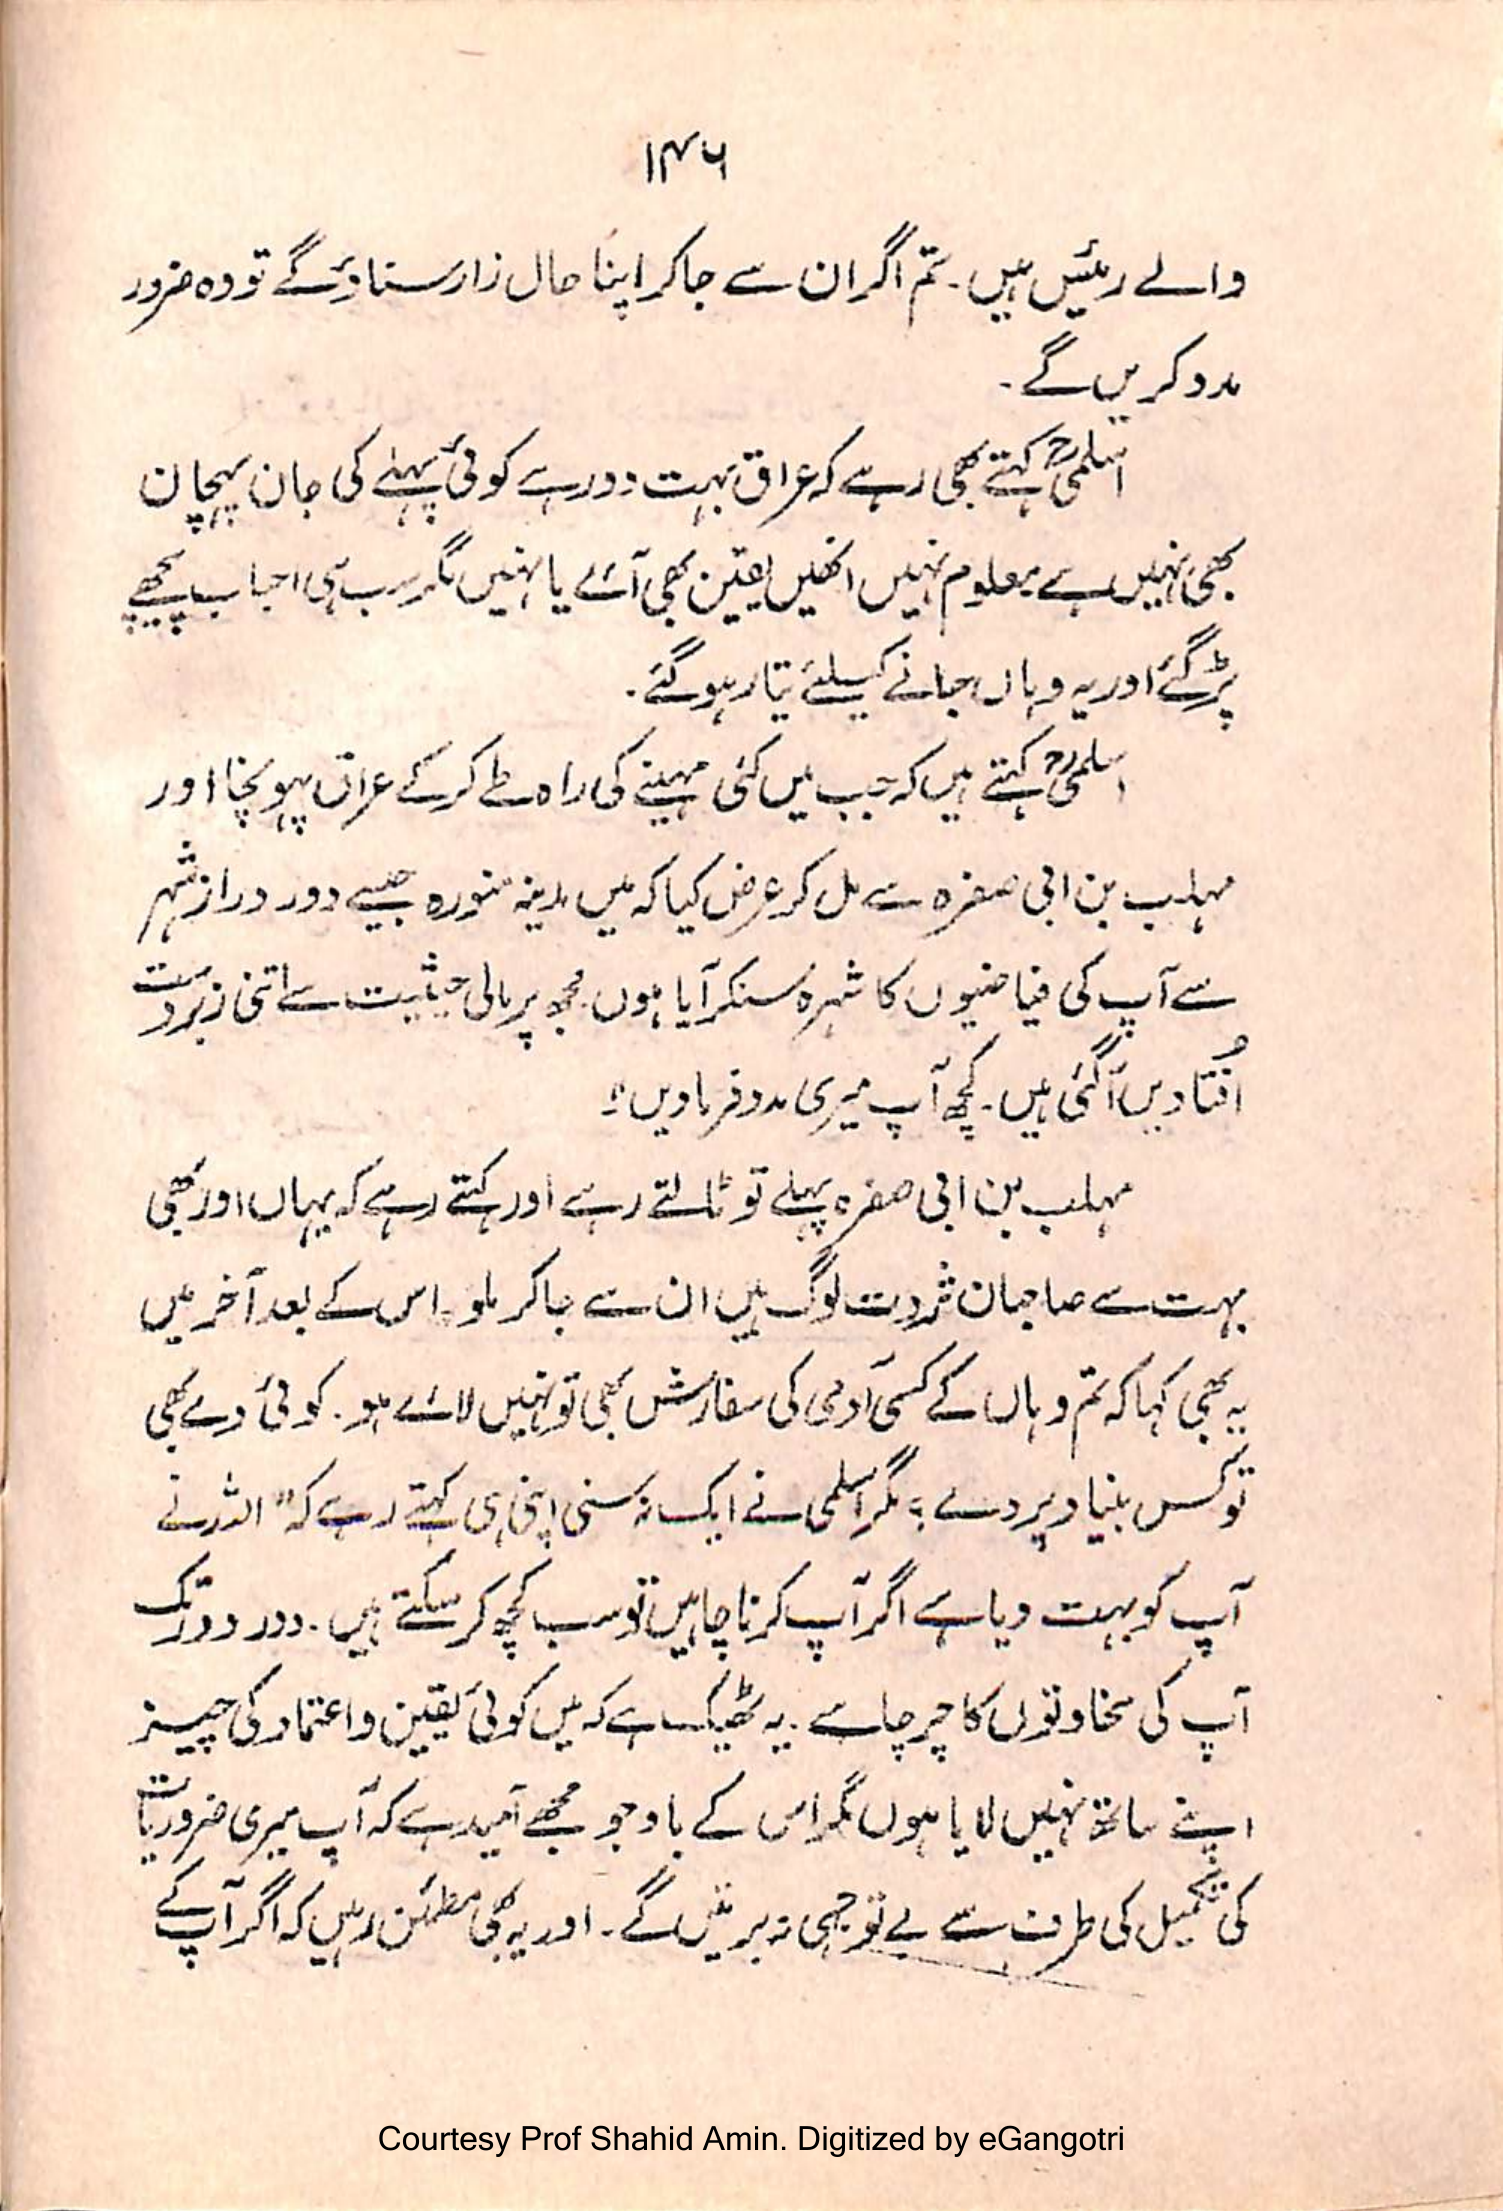 ۱۴۶
والے رئیس ہیں۔ تم اگر ان سے جاکر اپنا حال زار سناؤگے تو وہ ضرور
مدد کریں گے۔
اسلمیؒ کہتے بھی رہے کہ عراق بہت دور ہے کوئی پہلے کی جان پہچان
بھی نہیں ہے معلوم نہیں انھیں یقین بھی آئے یا نہیں مگر سب ہی احباب پیچھے
پڑ گئے اور یہ وہاں جانے کیلئے تیار ہوگئے۔
اسلمیؒ کہتے ہیں کہ جب میں کئی مہینے کی راہ طے کرکے عراق پہونچا اور
مہلب بن ابی صفرہ سے مل کر عرض کیا کہ میں مدینہ منورہ جیسے دور دراز شہر
سے آپ کی فیاضیوں کا شہرہ سنکر آیا ہوں۔ مجھ پر مالی حیثیت سے اتنی زبردست
اُفتادیں آگئی ہیں۔ کچھ آپ میری مدد فرمادیں!
مہلب بن ابی صفرہ پہلے تو ٹالتے رہے اور کہتے رہے کہ یہاں اور بھی
بہت سے صاحبان ثروت لوگ ہیں ان سے جاکر ملو۔ اس کے بعد آخر میں
یہ بھی کہا کہ تم وہاں کے کسی آدمی کی سفارش بھی تو نہیں لائے ہو۔ کوئی دے بھی
تو کس بنیاد پر دے؟ مگر اسلمی نے ایک نہ سنی اپنی ہی کہتے رہے کہ "اللہ نے
آپ کو بہت دیا ہے اگر آپ کرنا چاہیں تو سب کچھ کر سکتے ہیں۔ دور دور تک
آپ کی سخاوتوں کا چرچا ہے۔ یہ ٹھیک ہے کہ میں کوئی یقین و اعتماد کی چیز
اپنے ساتھ نہیں لایا ہوں مگر اس کے باوجو مجھے اُمید ہے کہ آپ میری ضروریات
کی تکمیل کی طرف سے بے توجہی نہ برتیں گے۔ اور یہ بھی مطمئن رہیں کہ اگر آپ کے
Courtesy Prof Shahid Amin. Digitized by eGangotri